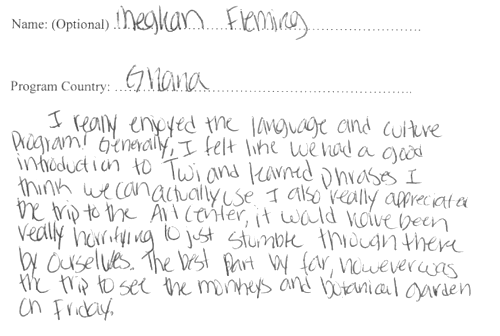 Name: (Optional) Meghan Fleming
Program Country: Ghana
I really enjoyed the language and culture
program! Generally, I felt like we had a good
introduction to Twi and learned phrases I
think we can actually use. I also really appreciated
the trip to the Art Center, it would have been
really horrifying to just stumble through there
by ourselves. The best part by far, however was
the trip to see the monkeys and botanical garden
on Friday.